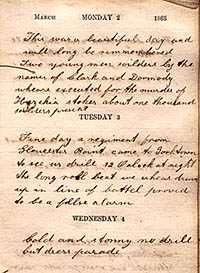 MARCH MONDAY 2 1863
This was a beautiful day and
will long be remmembered
Two young men soilders by the
names of Clark and Doomody
wheare executed for the murde of
Hezekia stokes about one thousand
soilders present
TUESDAY 3
Fine day a regiment from
Gloucester Point came to Yorktown
to see us drill 12 Oclock at night
the long roll beat we whear trun
up in line of battel proved
to be a falce alarm
WEDNESDAY 4
Cold and stormy no drill
but dress parade